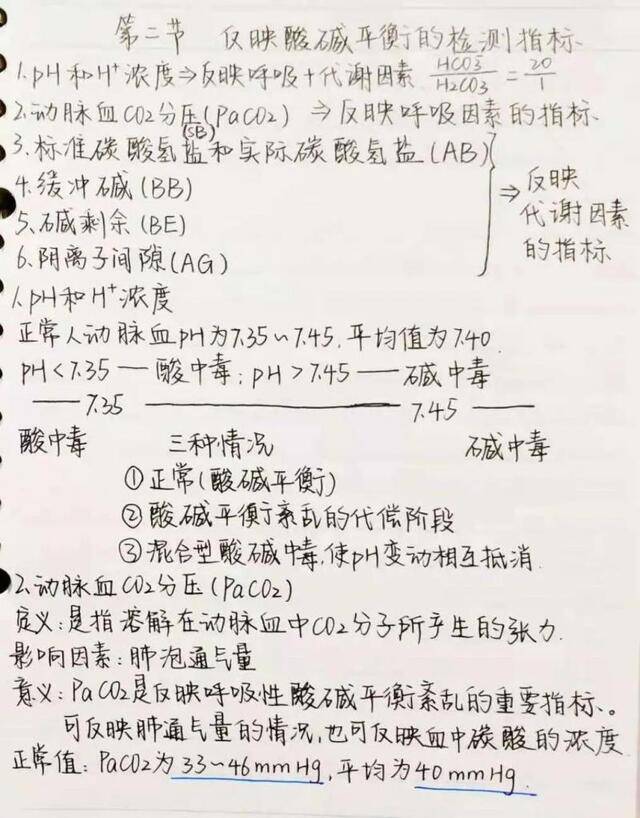 第二节 反映酸碱平衡的检测指标
1.pH和H⁺浓度⇒反映呼吸+代谢因素 HCO3⁻/H2CO3 = 20/1
2.动脉血CO2分压(PaCO2) ⇒反映呼吸因素的指标
3.标准碳酸氢盐(SB)和实际碳酸氢盐(AB)
4.缓冲碱(BB)
5.碱剩余(BE)
6.阴离子间隙(AG)
⇒反映
代谢因素
的指标
1.pH和H⁺浓度
正常人动脉血pH为7.35~7.45,平均值为7.40.
pH<7.35—酸中毒;pH>7.45—碱中毒
—7.35——7.45—
酸中毒 三种情况 碱中毒
①正常(酸碱平衡)
②酸碱平衡紊乱的代偿阶段
③混合型酸碱中毒,使pH变动相互抵消.
2.动脉血CO2分压(PaCO2)
定义:是指溶解在动脉血中CO2分子所产生的张力.
影响因素:肺泡通气量
意义:PaCO2是反映呼吸性酸碱平衡紊乱的重要指标。
可反映肺通气量的情况,也可反映血中碳酸的浓度
正常值:PaCO2为33~46mmHg,平均为40mmHg.